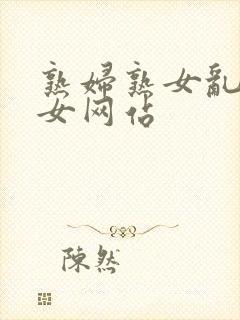 熟婦熟女亂
女网佔
陳然